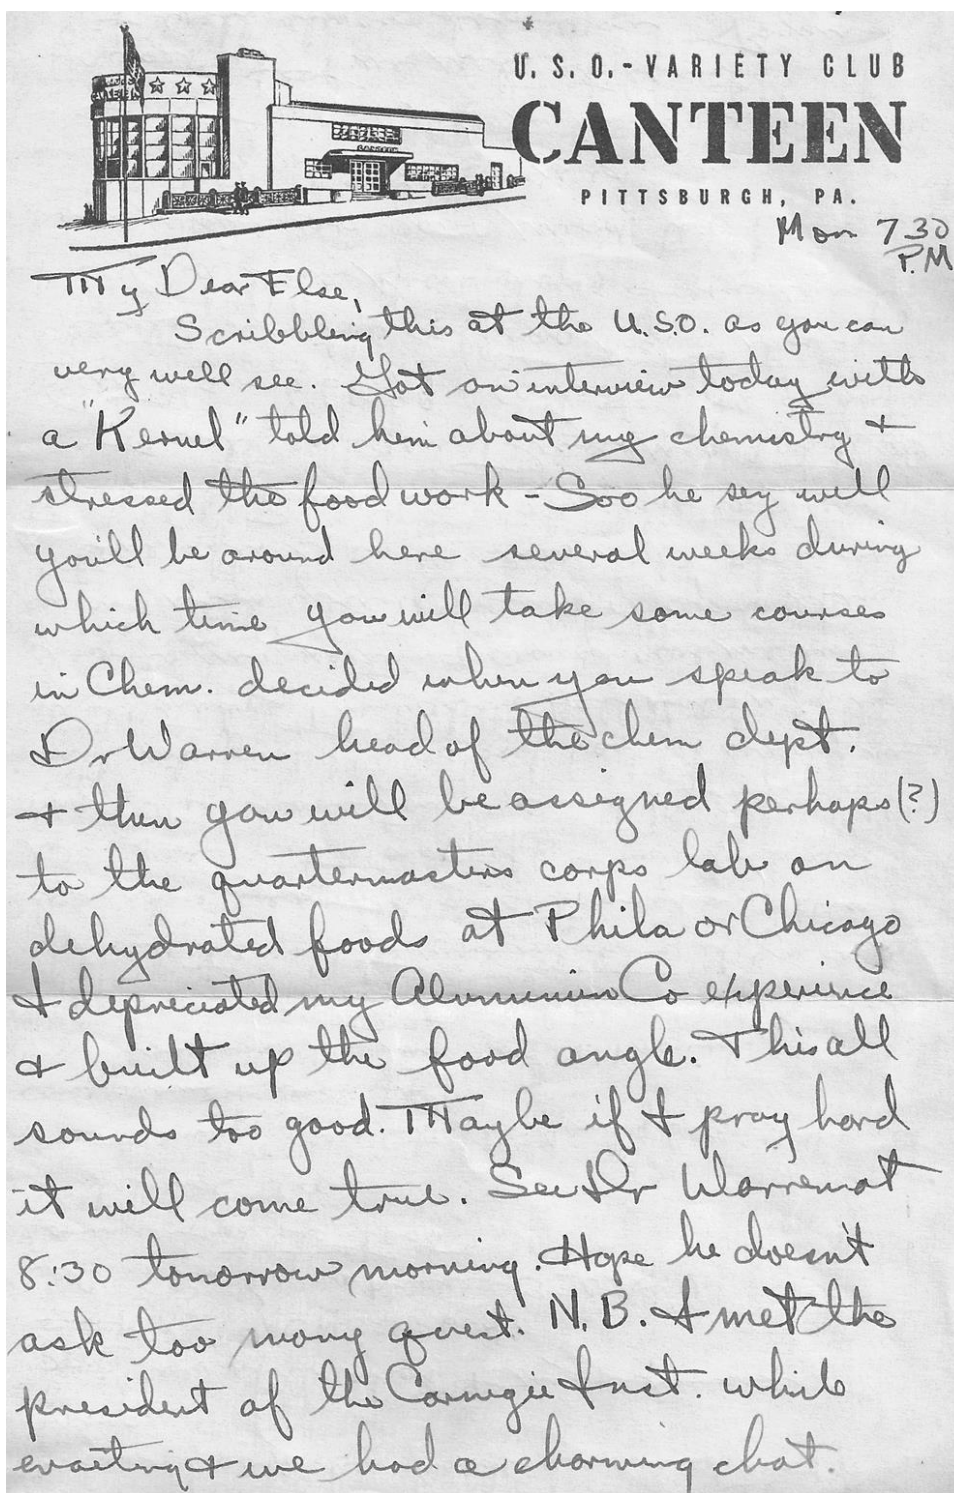 U. S. O. - VARIETY CLUB
CANTEEN
PITTSBURGH, PA.
Mon 7 30
P.M
My Dear Else,
Scribbling this at the U.S.O. as you can
very well see. Got an interview today with
a "Kernel" told him about my chemistry +
stressed the food work - Soo he sey well
you'll be around here several weeks during
which time you will take some courses
in Chem. decided when you speak to
Dr Warren head of the chem dept.
+ then you will be assigned perhaps (?)
to the quartermasters corps lab on
dehydrated foods at Phila or Chicago
I depreciated my Aluminum Co experience
+ built up the food angle. This all
sounds too good. Maybe if I pray hard
it will come true. See Dr Warren at
8:30 tomorrow morning. Hope he doesn't
ask too many quest. N.B. I met the
president of the Carnegie Inst. while
waiting + we had a charming chat.